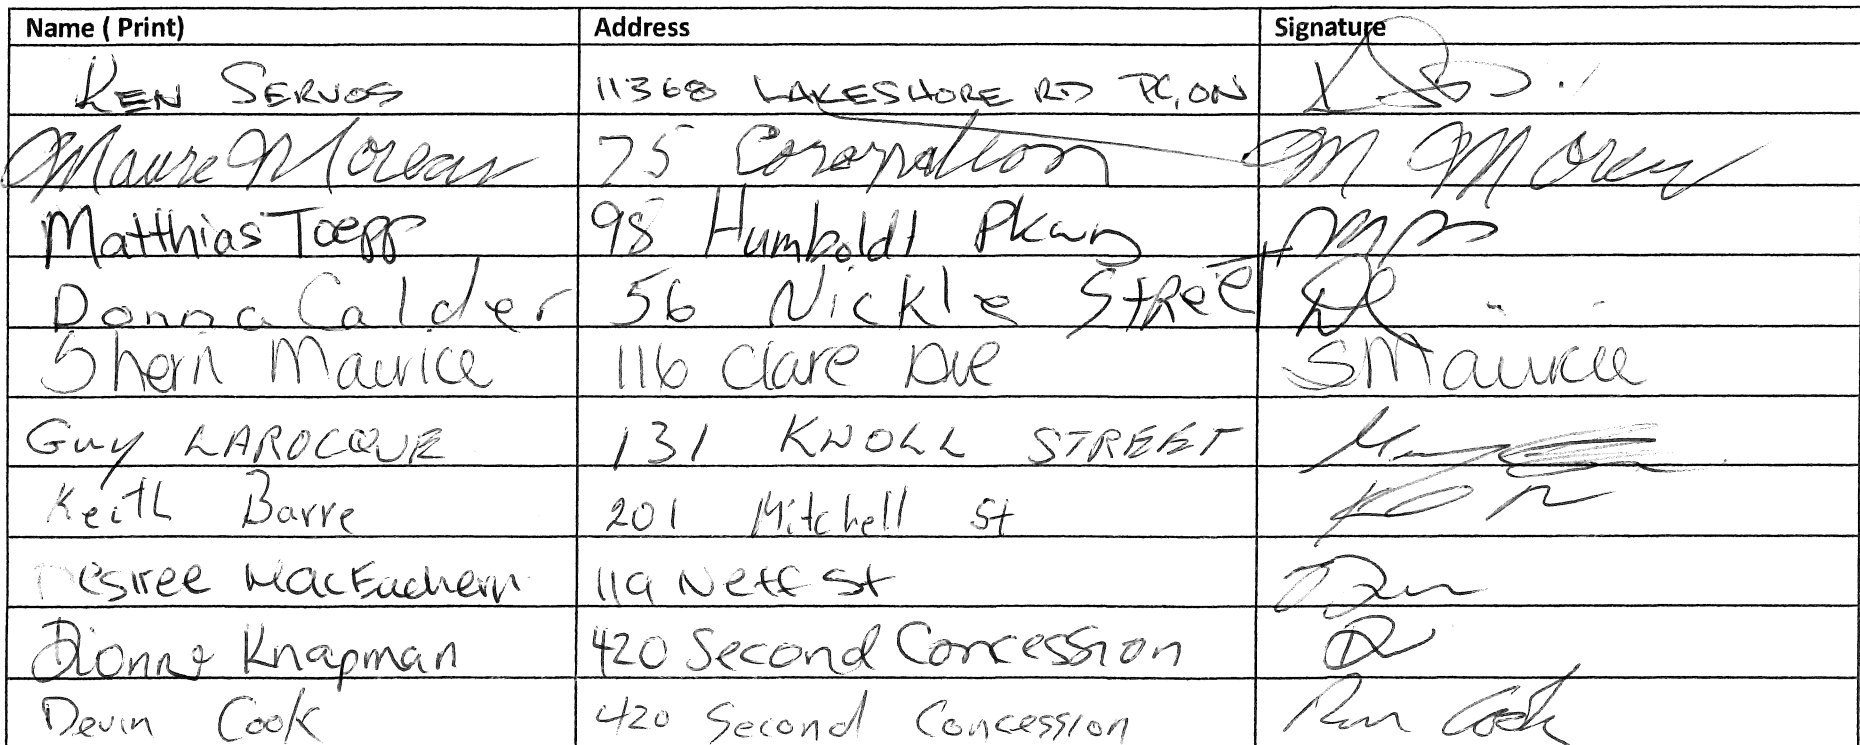 Name ( Print) Address Signature
KEN SERVOS 11368 LAKESHORE RD PC, ON
Maure Moreau 75 Coronation M Moreau
Matthias Toepp 98 Humboldt Pkwy
Donna Calder 56 Nickle Street
Sherri Maurice 116 Clare Ave SMaurice
Guy LAROCQUE 131 KNOLL STREET
Keith Barre 201 Mitchell St
Desiree MacEachern 119 Neff St
Dionne Knapman 420 Second Concession
Devin Cook 420 Second Concession Cook